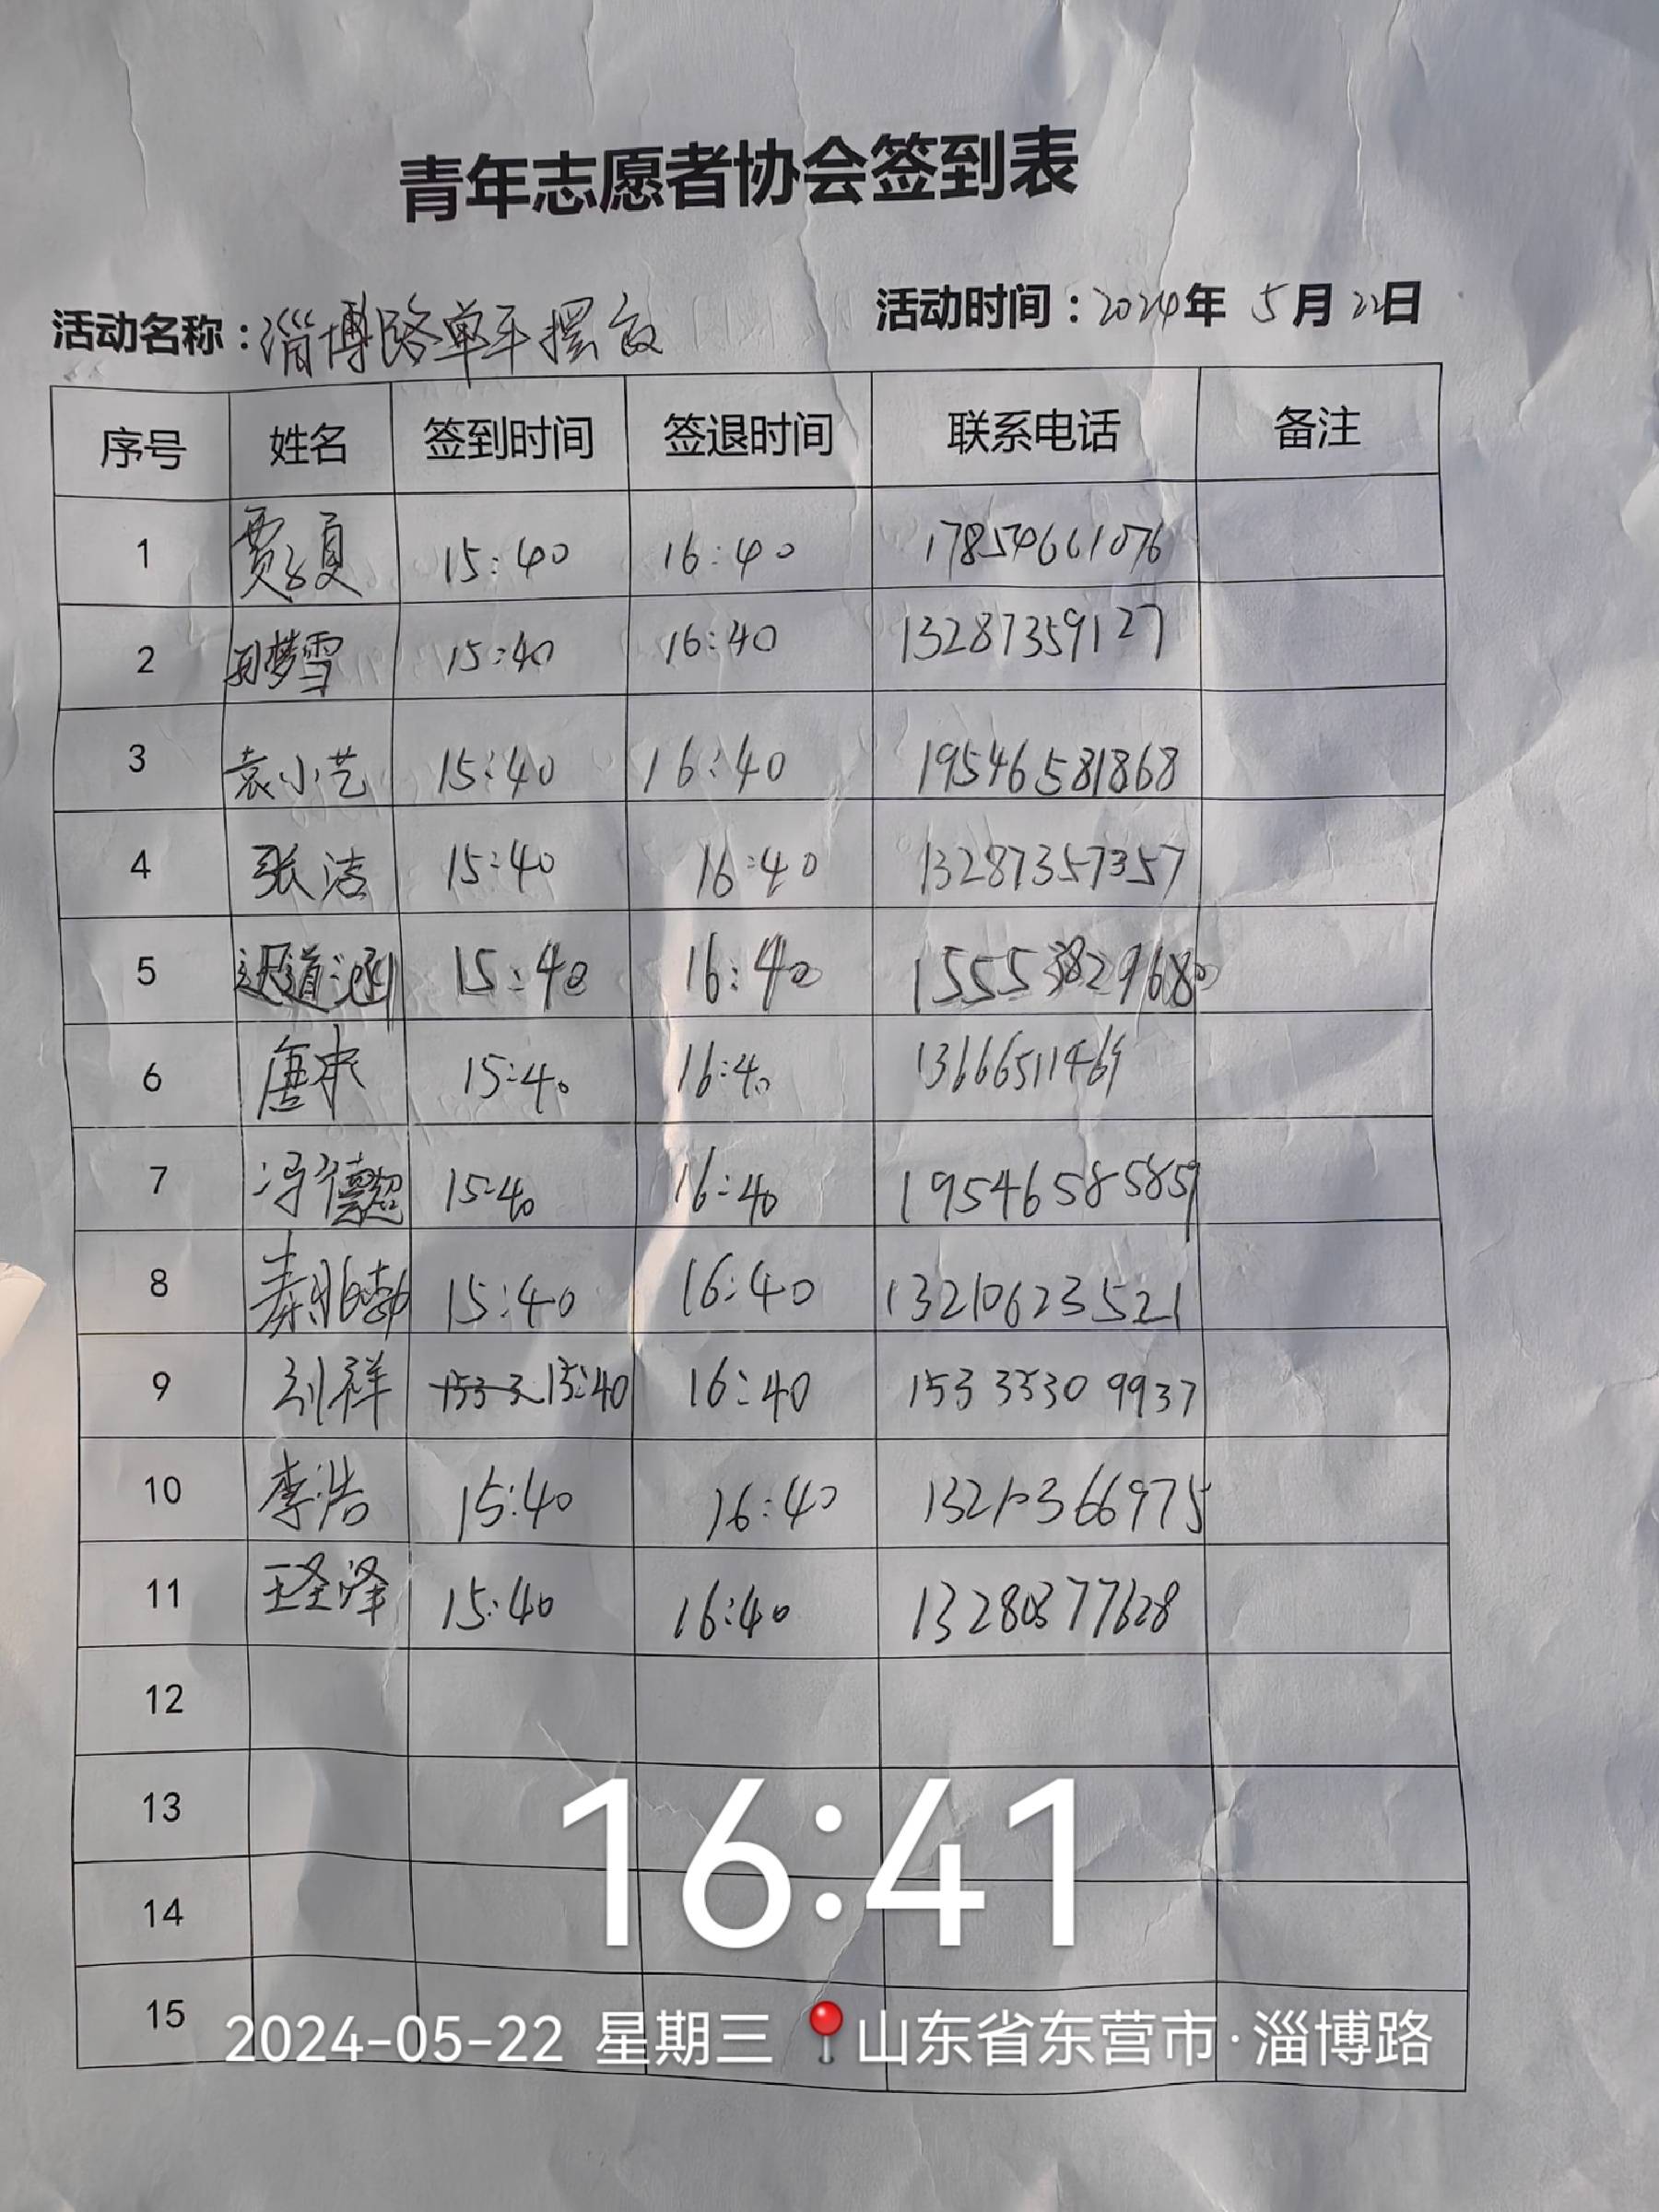 青年志愿者协会签到表
活动名称：淄博路单车摆放 活动时间：2024年 5月 22日
序号 姓名 签到时间 签退时间 联系电话 备注
1 贾子夏 15:40 16:40 17854661076
2 孙梦雪 15:40 16:40 13287359127
3 袁小艺 15:40 16:40 19546581868
4 张洁 15:40 16:40 13287357357
5 迟道涵 15:40 16:40
6 唐 15:40 16:40 13666511469
7 冯德超 15:40 16:40 19546585859
8 15:40 16:40 13210623521
9 刘祥 15:40 16:40 15333309937
10 李浩 15:40 16:40 13210366975
11 王圣泽 15:40 16:40
12
13
14
15
16:41
2024-05-22 星期三 山东省东营市·淄博路